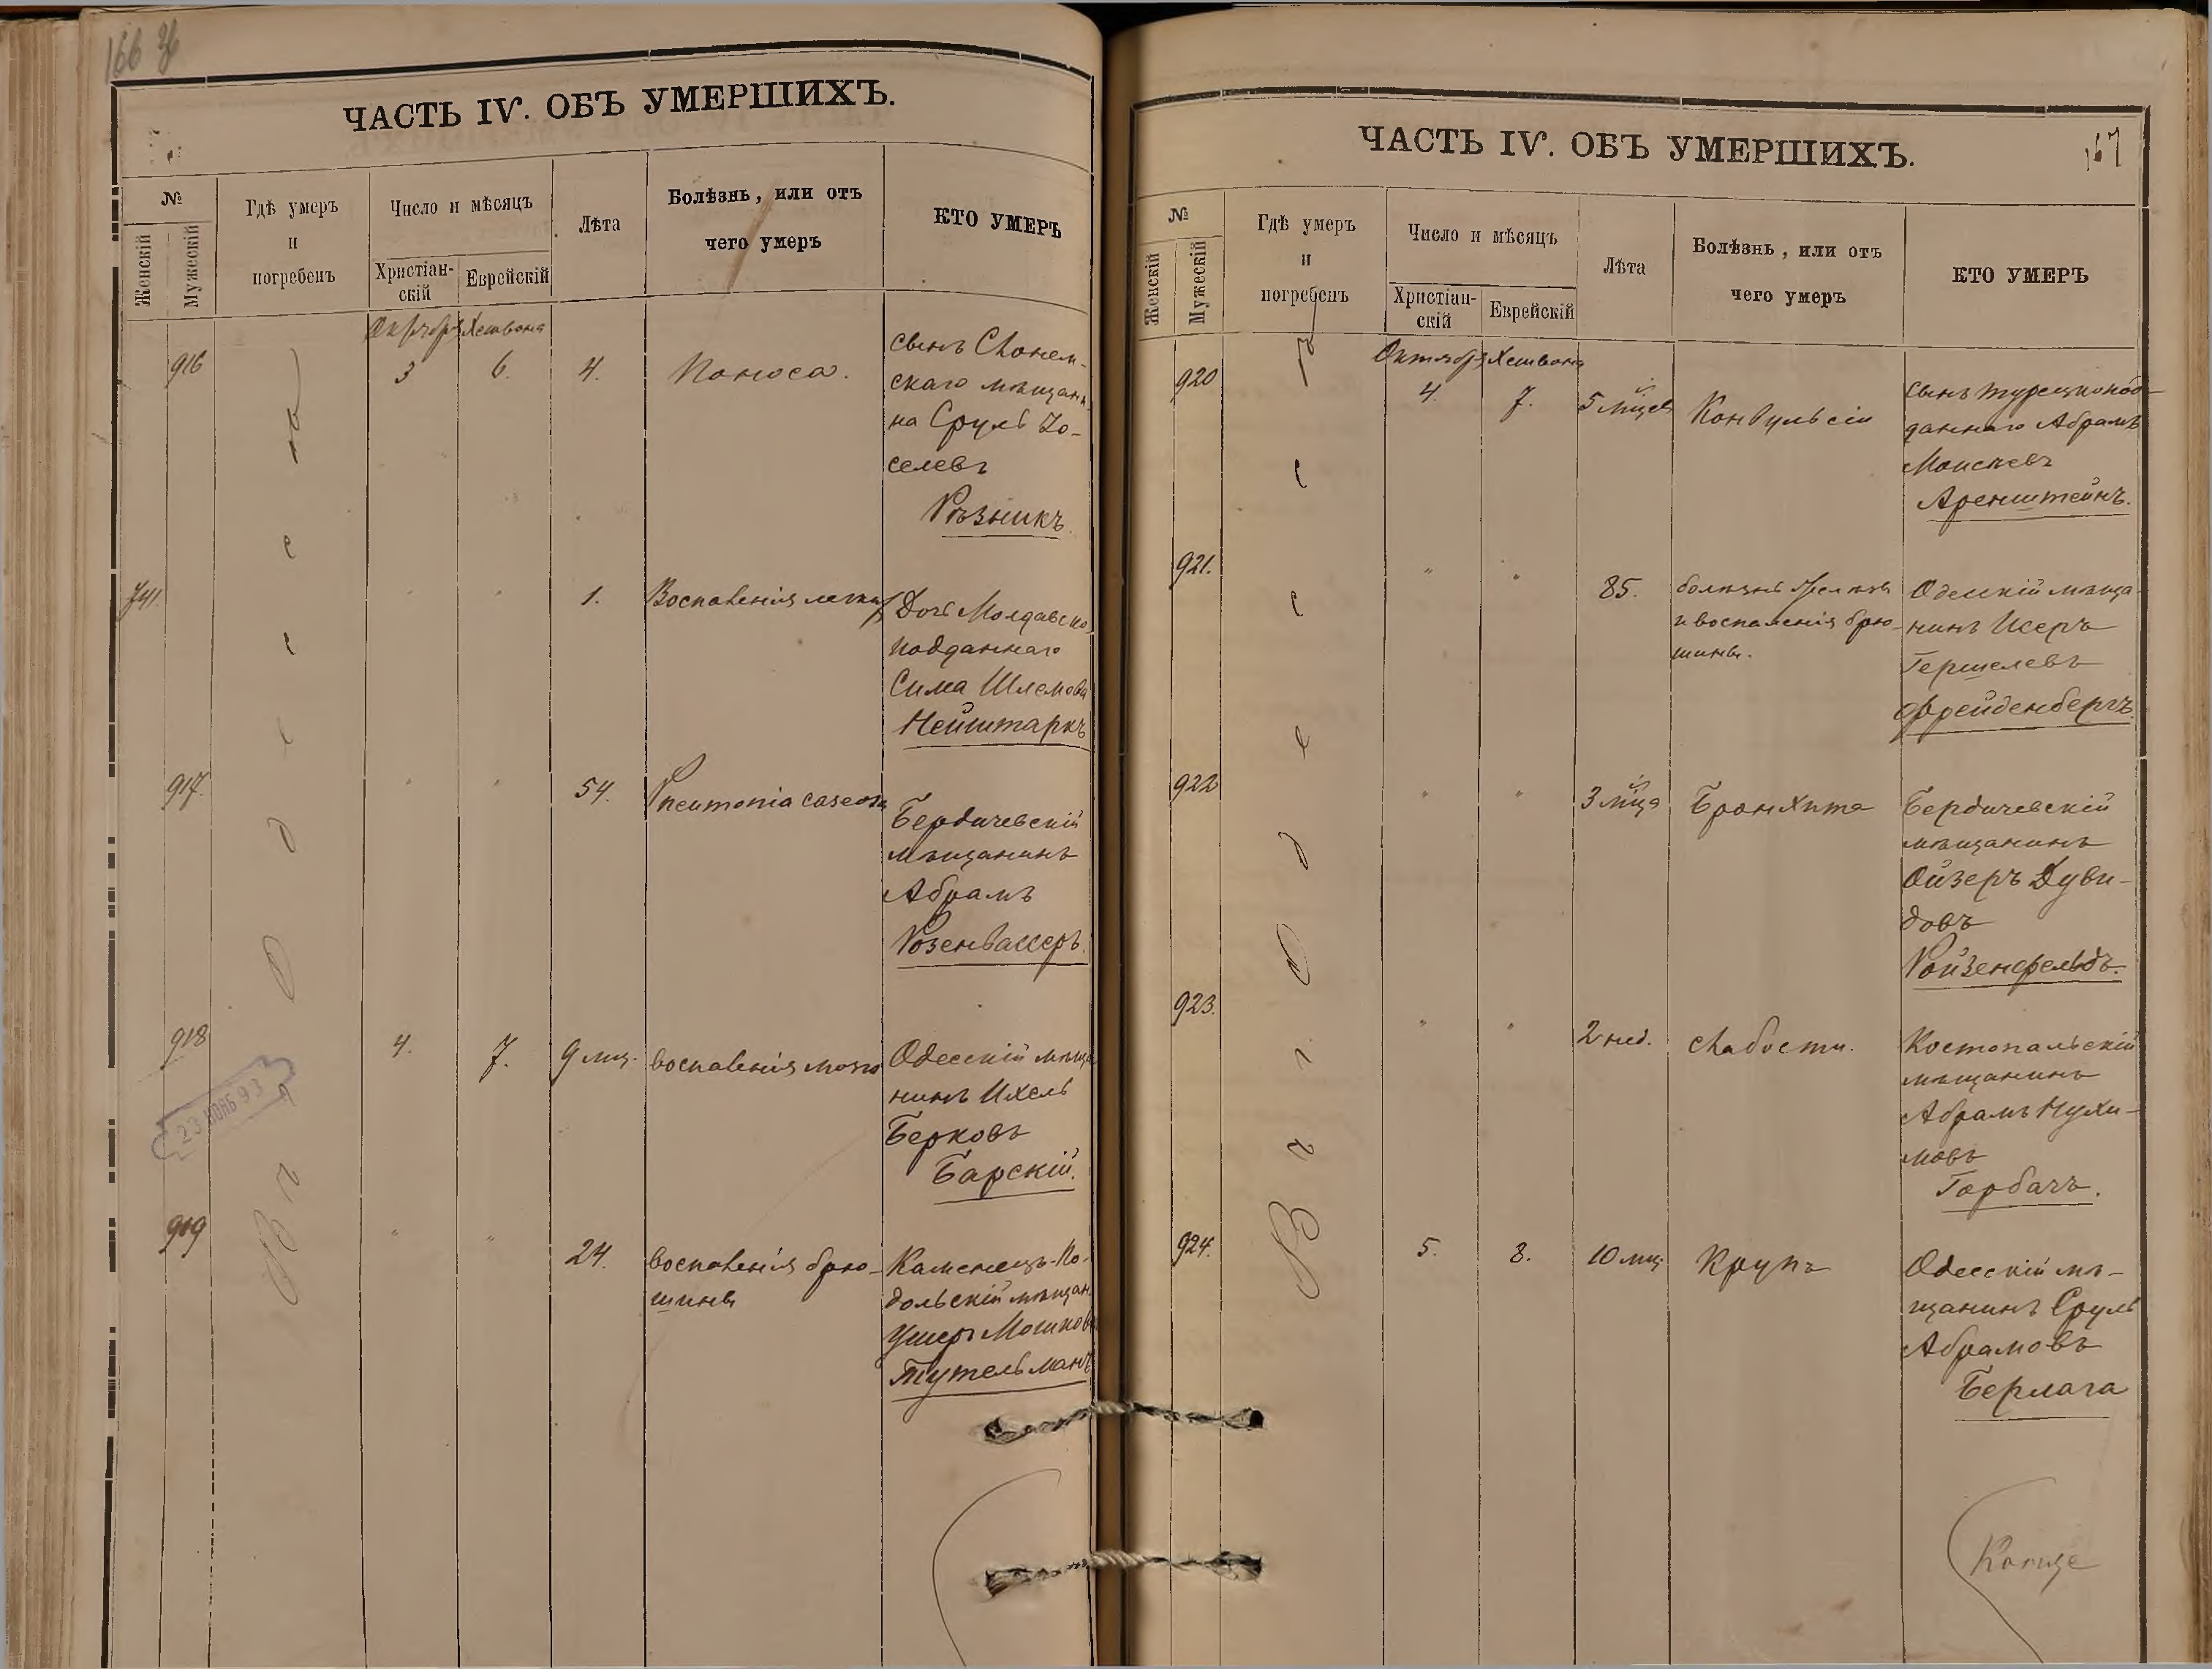 166
ЧАСТЬ IV. ОБЪ УМЕРШИХЪ.
№
Женскій
Мужескій
Гдѣ умеръ
и
погребенъ
Число и мѣсяцъ
Христіан-
скій
Еврейскій
Лѣта
Болѣзнь, или отъ
чего умеръ
КТО УМЕРЪ
Въ г. Одессѣ
Октября Хешвана
916
3
6.
4.
Поноса.
Сынъ Слоним-
скаго мѣщани
на Сруль Іо-
селевъ
Рѣзникъ.
741.
"
"
1.
Воспаленія легкихъ
Дочь Молдавско
подданнаго
Сима Шлемова
Нейштаркъ
917.
"
"
54.
Pneumonia caseosa
Бердичевскій
мѣщанинъ
Абрамъ
Розенвассеръ.
918
4.
7.
9 мц.
воспаленія мозга
Одесскій мѣща
нинъ Ихель
Берковъ
Барскій.
23 НОЯБ 93
919
"
"
24.
воспаленія брю-
шины
Каменецъ-По-
дольскій мѣщан
Ушеръ Мошковъ
Тутельманъ
167
ЧАСТЬ IV. ОБЪ УМЕРШИХЪ.
№
Женскій
Мужескій
Гдѣ умеръ
и
погребенъ
Число и мѣсяцъ
Христіан-
скій
Еврейскій
Лѣта
Болѣзнь, или отъ
чего умеръ
КТО УМЕРЪ
Въ г. Одессѣ
Октября Хешвана
920
4.
7.
5 мцев
Конвульсіи
Сынъ турецкопод-
даннаго Абрамъ
Моисѣевъ
Аренштейнъ.
921.
"
"
85.
болѣзнь
и воспаленія брю-
шины.
Одесскій мѣща
нинъ Исеръ
Гершелевъ
Фрейденбергъ.
922
"
"
3 мца
Бронхита
Бердичевскій
мѣщанинъ
Ойзеръ Дуви-
довъ
Ройзенфельдъ.
923.
"
"
2 нед.
слабости.
Костопальскій
мѣщанинъ
Абрамъ Нухи-
мовъ
Горбачъ.
924.
5.
8.
10 мц.
Крупъ
Одесскій мѣ-
щанинъ Сруль
Абрамовъ
Берлага